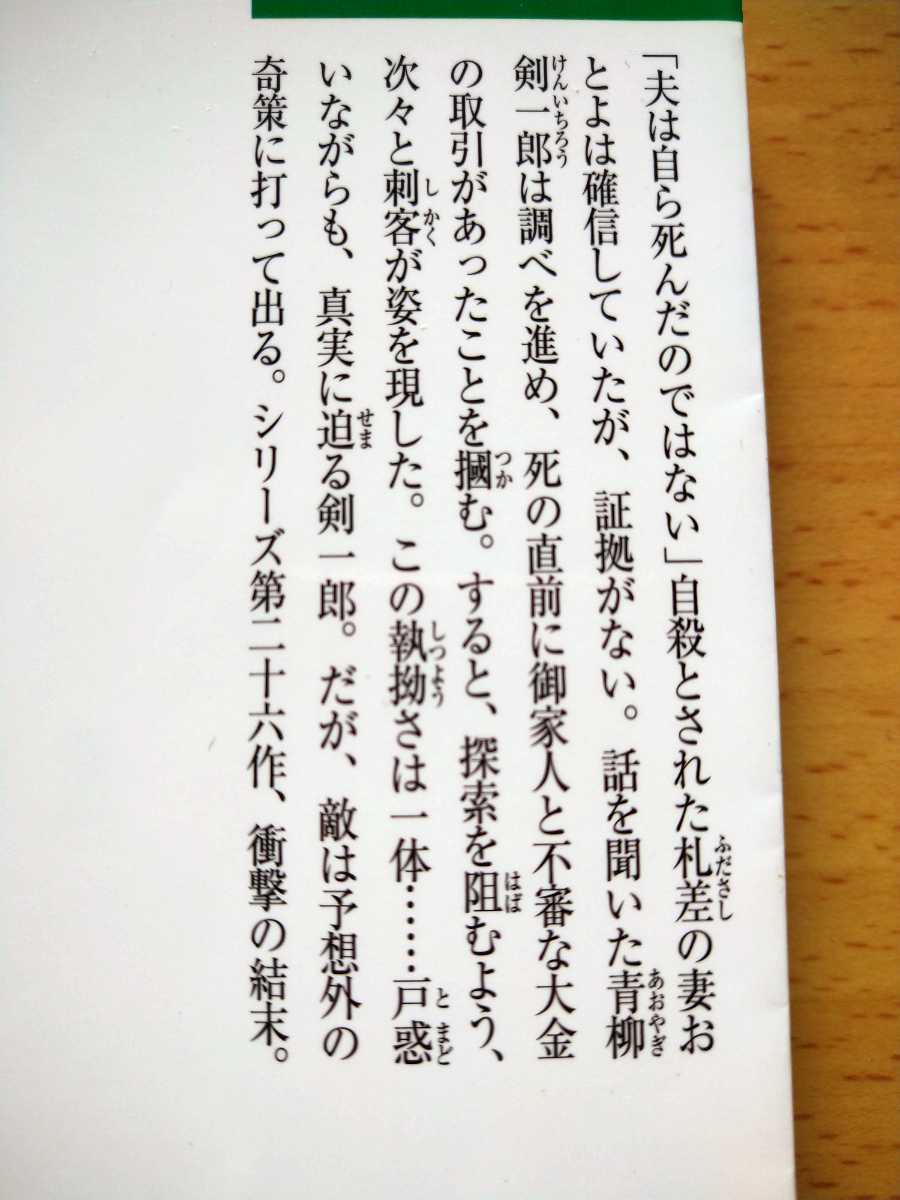 「夫は自ら死んだのではない」自殺とされた札差の妻お
とよは確信していたが、証拠がない。話を聞いた青柳
剣一郎は調べを進め、死の直前に御家人と不審な大金
の取引があったことを摑む。すると、探索を阻むよう、
次々と刺客が姿を現した。この執拗さは一体……戸惑
いながらも、真実に迫る剣一郎。だが、敵は予想外の
奇策に打って出る。シリーズ第二十六作、衝撃の結末。